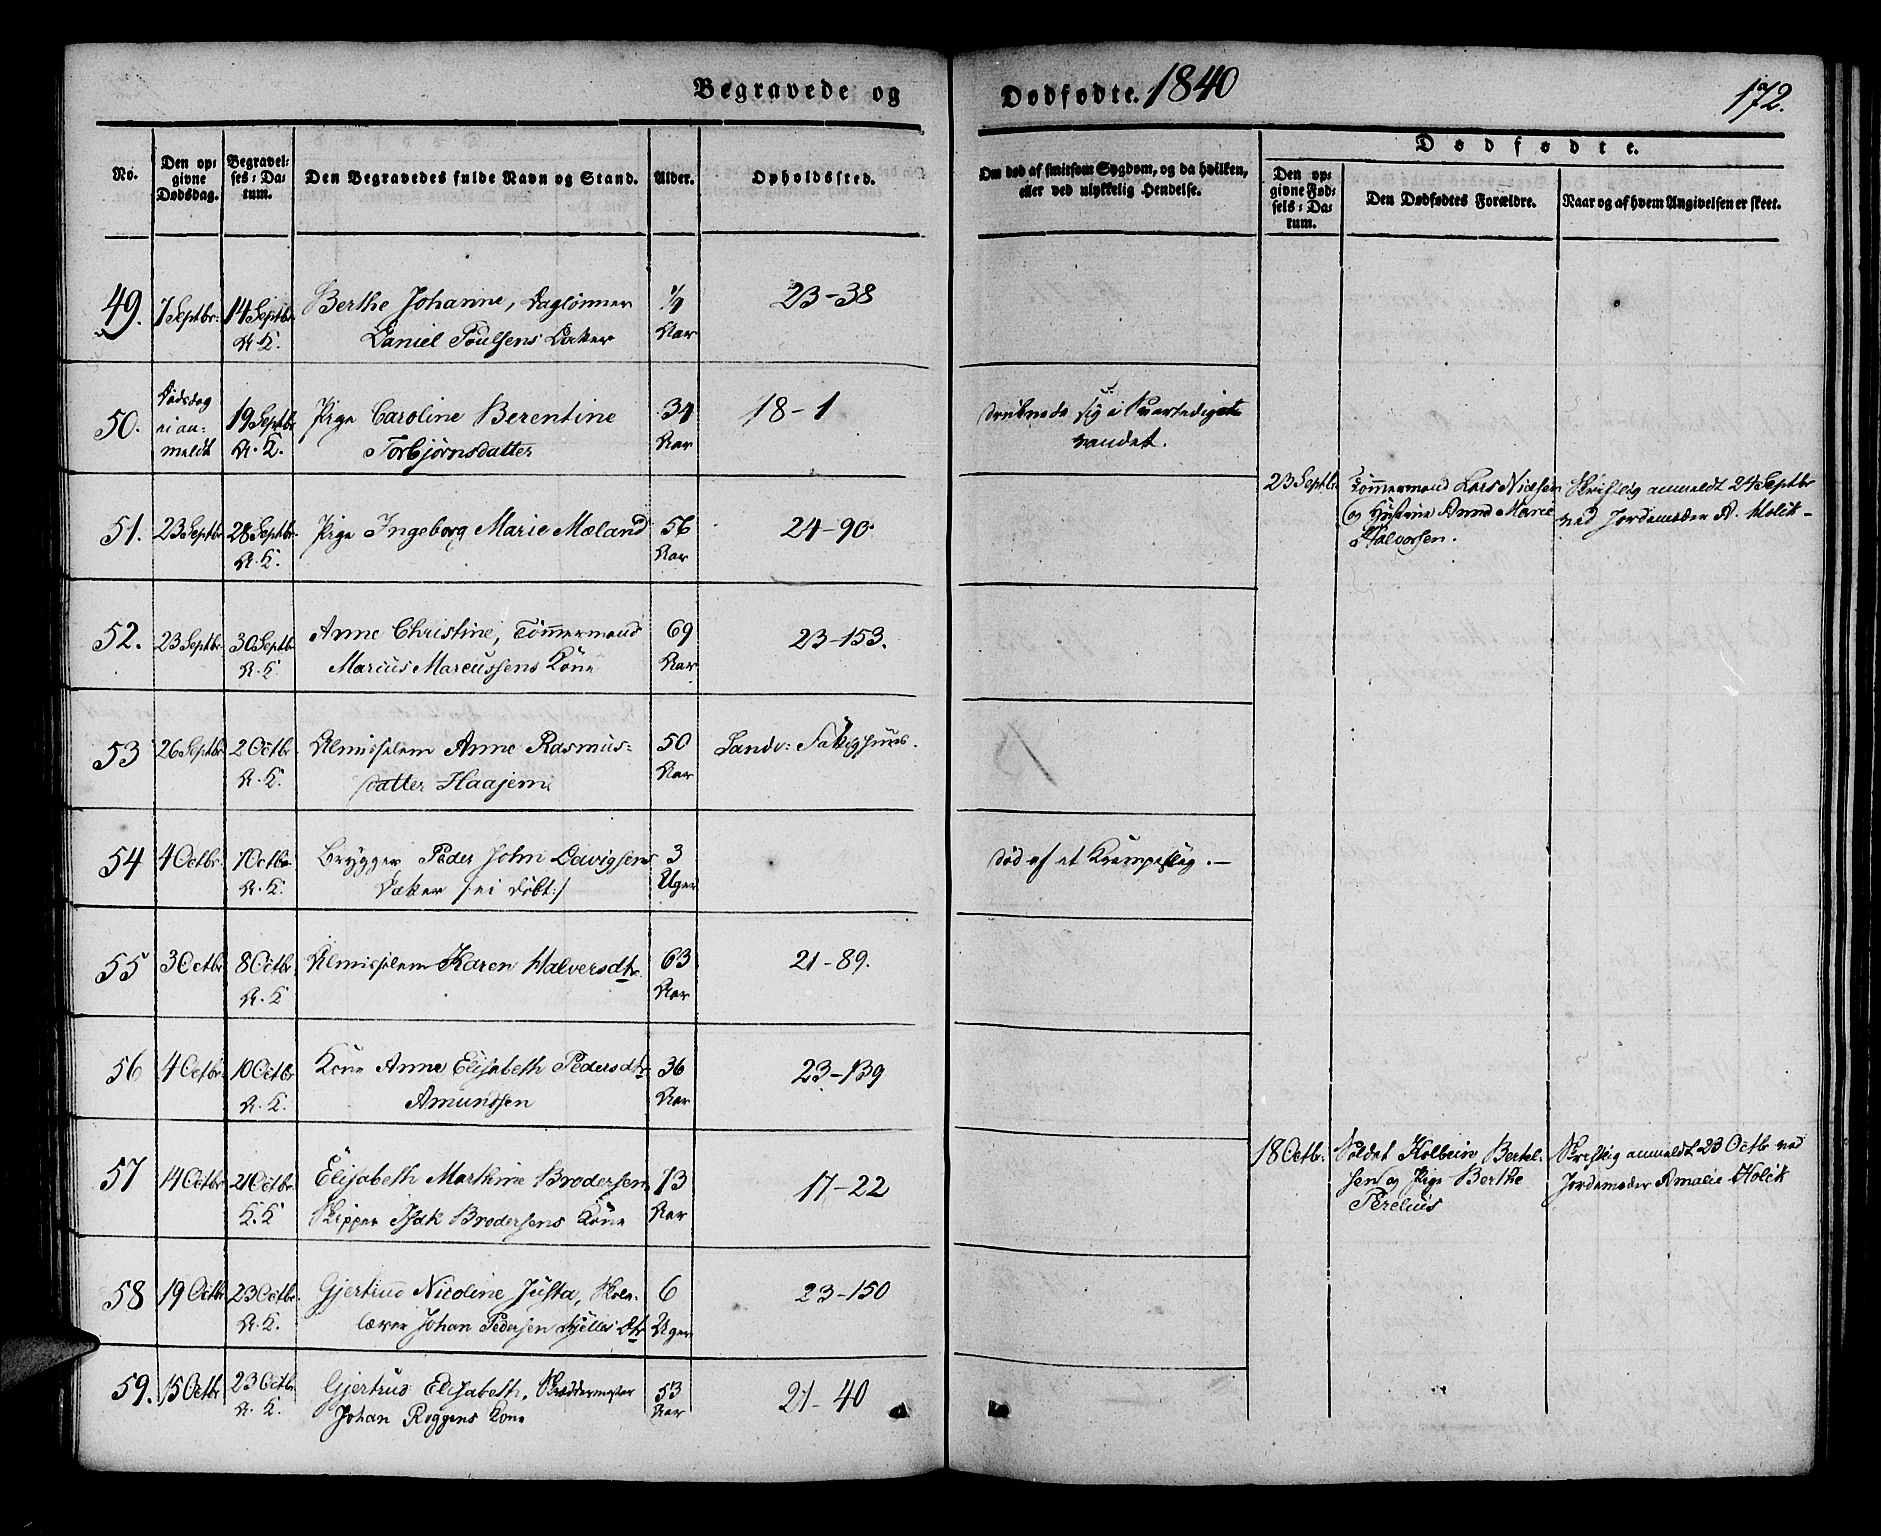 Begravede og Dødfødte. 1840
172.
No.
Den opgivne Dødsdag.
Begravelses-Datum.
Den Begravedes fulde Navn og Stand.
Alder.
Opholdssted.
Om død af smitsom Sygdom, og da hvilken,
eller ved ulykkelig Hendelse.
Dødfødte.
Den opgivne Fødsels-Datum.
Den Dødfødtes Forældre.
Naar og af hvem Angivelsen er skeet.
49. 7 Septbr: 14 Septbr Berthe Johanne, Daglønner 1/4 23-38
A. K. Daniel Poulsens Datter Aar
50. Dødsdag 19 Septbr Pige Caroline Berentine 34 18-1 druknede sig i Svartediget
ei an- A. K. Torbjørnsdatter Aar vandet.
meldt
51. 23 Septbr 28 Septbr Pige Ingeborg Marie Mæland 56 24-90.
A. K. Aar
23 Septbr Tømmermand Lars Nielsen Skriftlig anmeldt 24 Septbr
og Hustrue Anne Marie ved Jordemoder A. Holck
Halvorsen.
52. 23 Septbr 30 Septbr Anne Christine, Tømmermand 69 23-153.
A. K. Marcus Marcussens Kone Aar
53 26 Septbr 2 Octbr Almisselem Anne Rasmus- 50 Sandv:
A. K. datter Aar
54 4 Octbr. 7 Octbr Brygger Peder John 3 død af et Krampeslag.
A. K. (ei døbt:) Uger
55 3 Octbr 8 Octbr Almisselem Karen Halversdtr. 63 21-89.
A. K Aar
56 4 Octbr. 10 Octbr Kone Anne Elisabeth Pedersdtr 36 23-139
A. K. Amundsen Aar
57 14 Octbr 21 Octbr Elisabeth Marthine Brodersen 73 17-22
K. K Skipper Isak Brodersens Kone Aar
18 Octbr. Soldat Kolbein Bertel- Skriftlig anmeldt 23 Octbr ved
sen og Pige Berthe Jordemoder Amalie Holck
58 19 Octbr 23 Octbr. Gjertrud Nicoline Justa, Skole- 6 23-150
A. K. lærer Johan Pedersen Dtr Uger
59. 15 Octbr 23 Octbr Gjertrud Elisabeth, Skreddermester 53 21-40
A. K. Johan Roggens Kone Aar